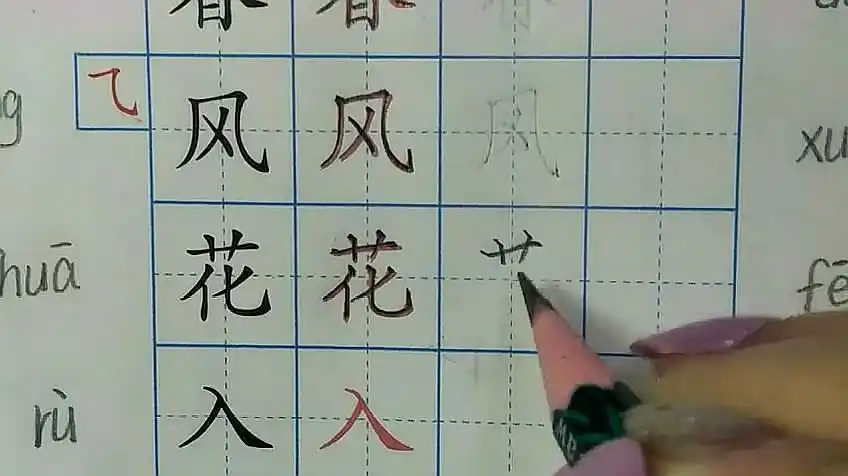 春 春
乁 风 风 风 xu
huā 花 花 艹 fē
rù 入 入